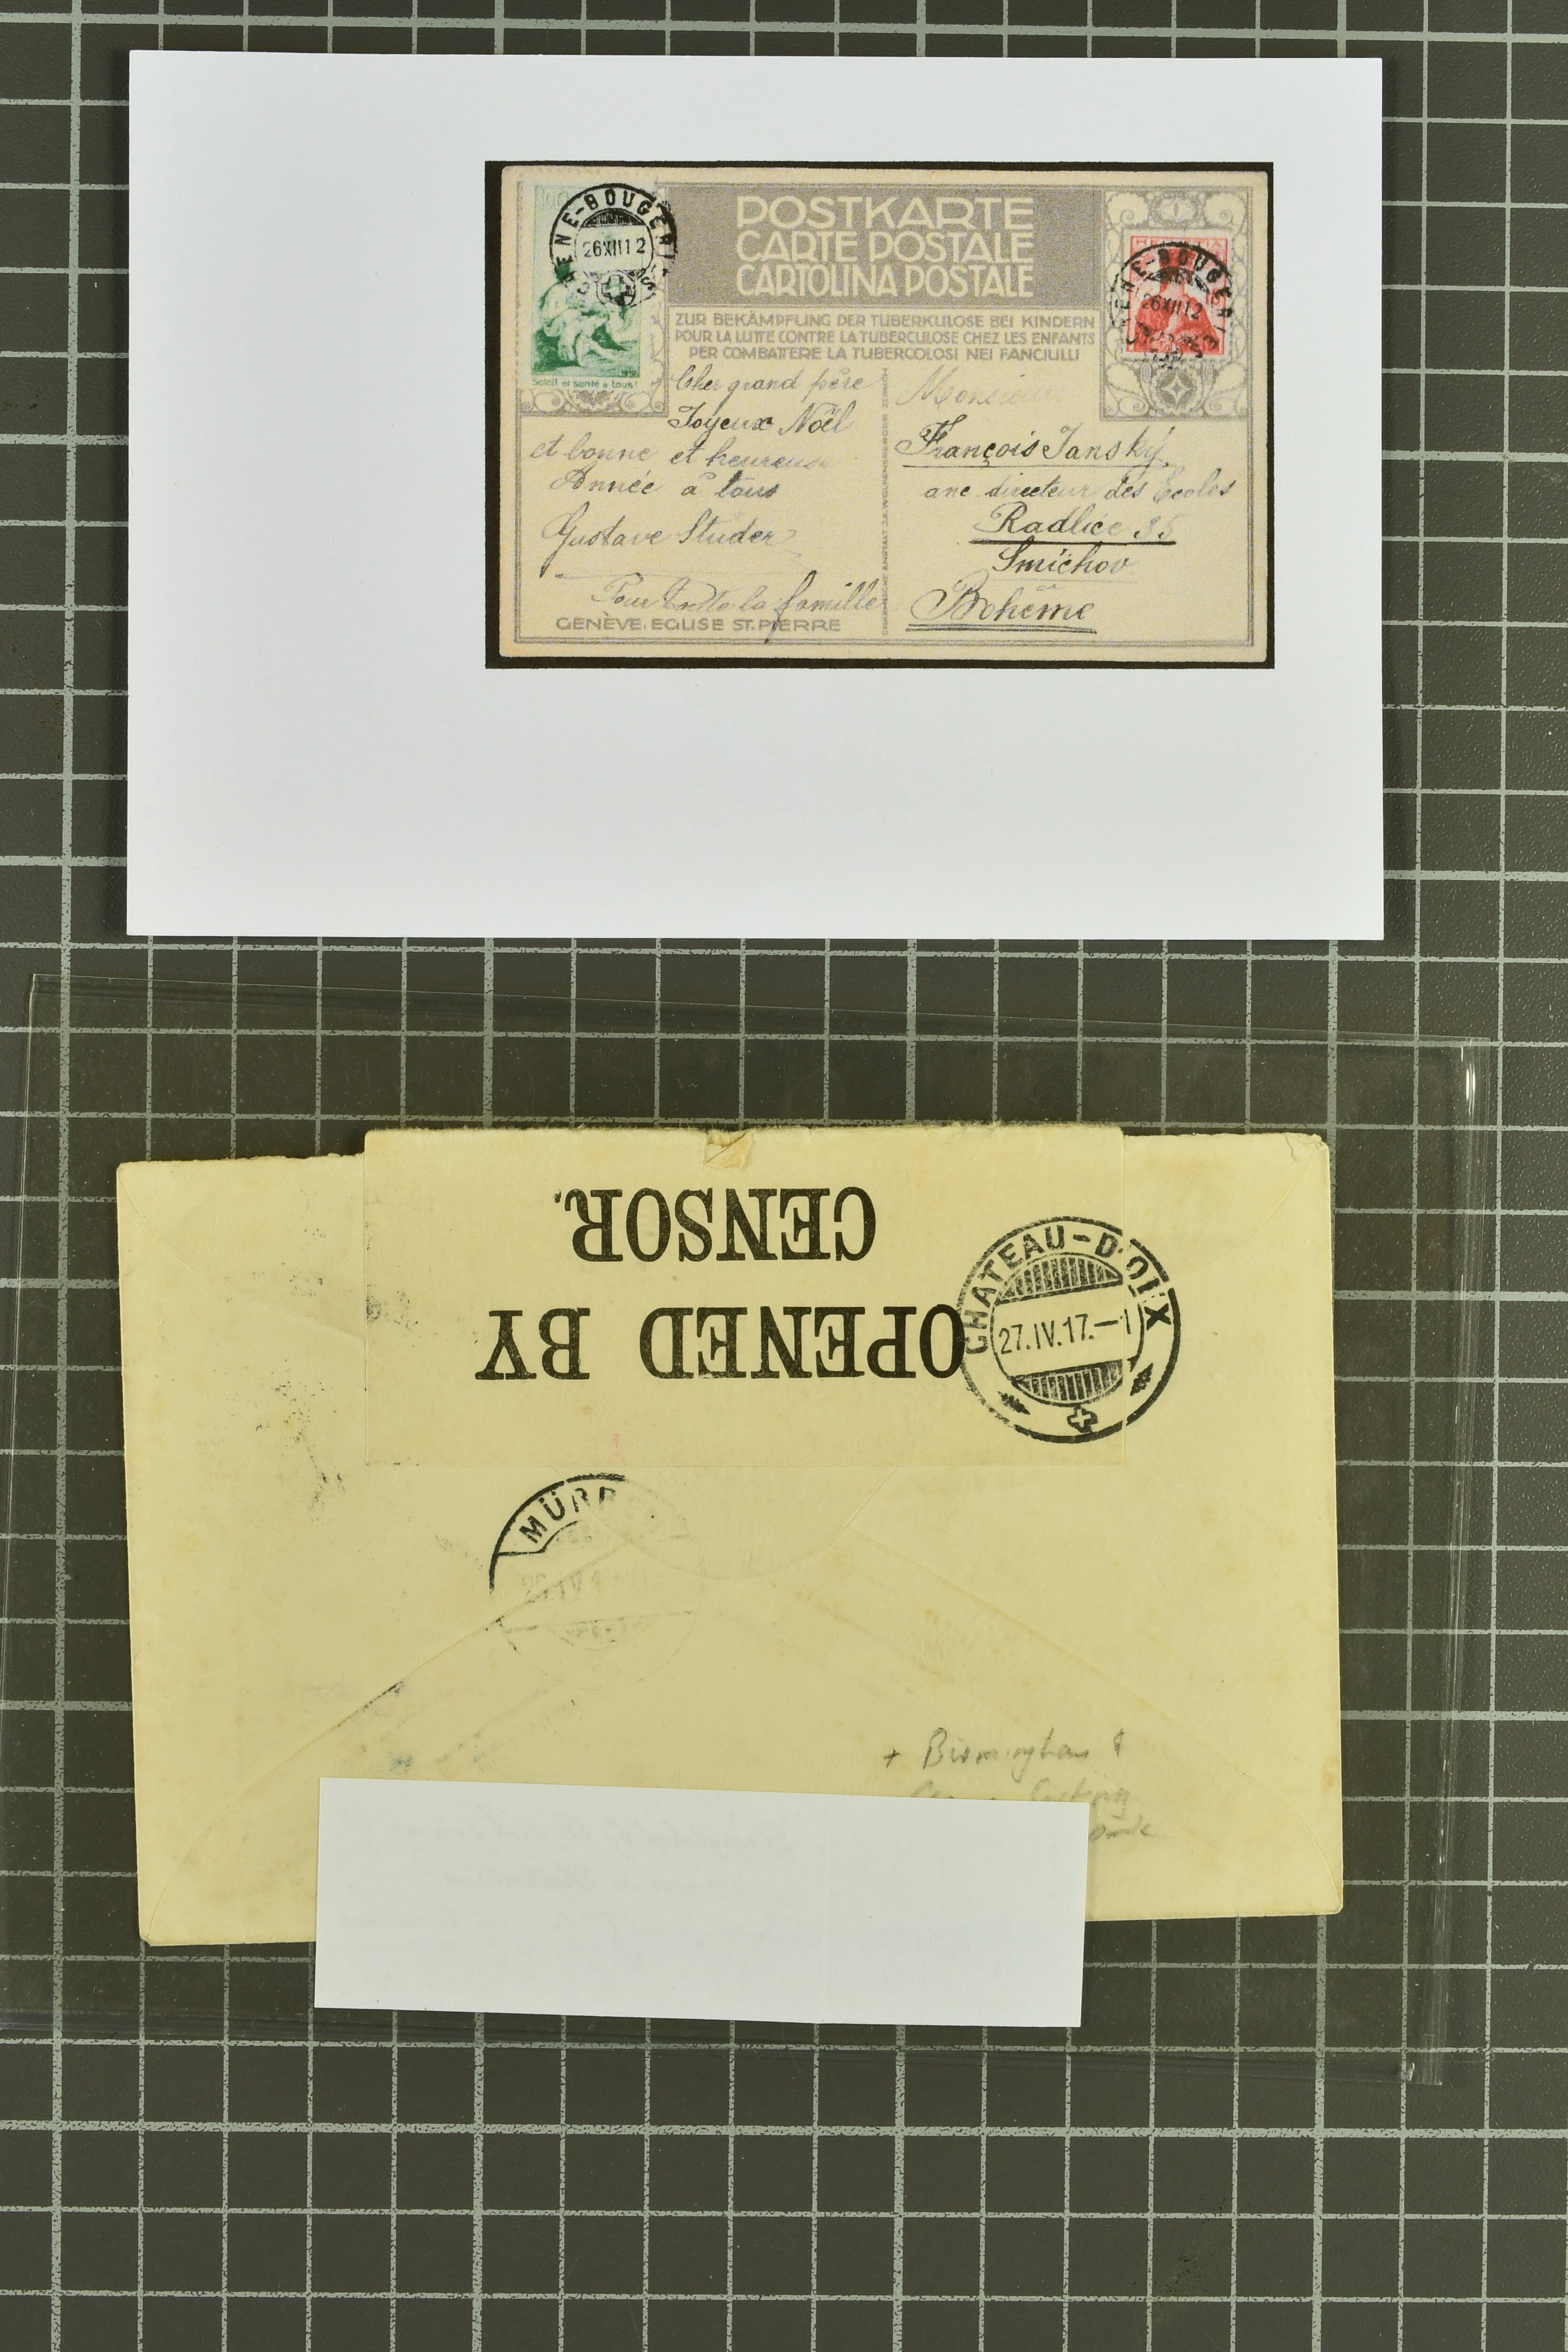 CHÊNE-BOUGERIES
26 XII 12
Soleil et santé à tous!
POSTKARTE
CARTE POSTALE
CARTOLINA POSTALE
ZUR BEKÄMPFUNG DER TUBERKULOSE BEI KINDERN
POUR LA LUTTE CONTRE LA TUBERCULOSE CHEZ LES ENFANTS
PER COMBATTERE LA TUBERCOLOSI NEI FANCIULLI
HELVETIA
CHÊNE-BOUGERIES
26 XII 12
Cher grand père
Joyeux Noël
et bonne et heureuse
Année à tous
Gustave Studer
Pour toute la famille
GENÈVE. EGLISE ST. PIERRE
Monsieur
François Janský
anc directeur des Écoles
Radlice 35
Smíchov
Bohême
OPENED BY
CENSOR.
CHATEAU-D'OEX
27.IV.17.–1
MÜRR
+ Birmingham &